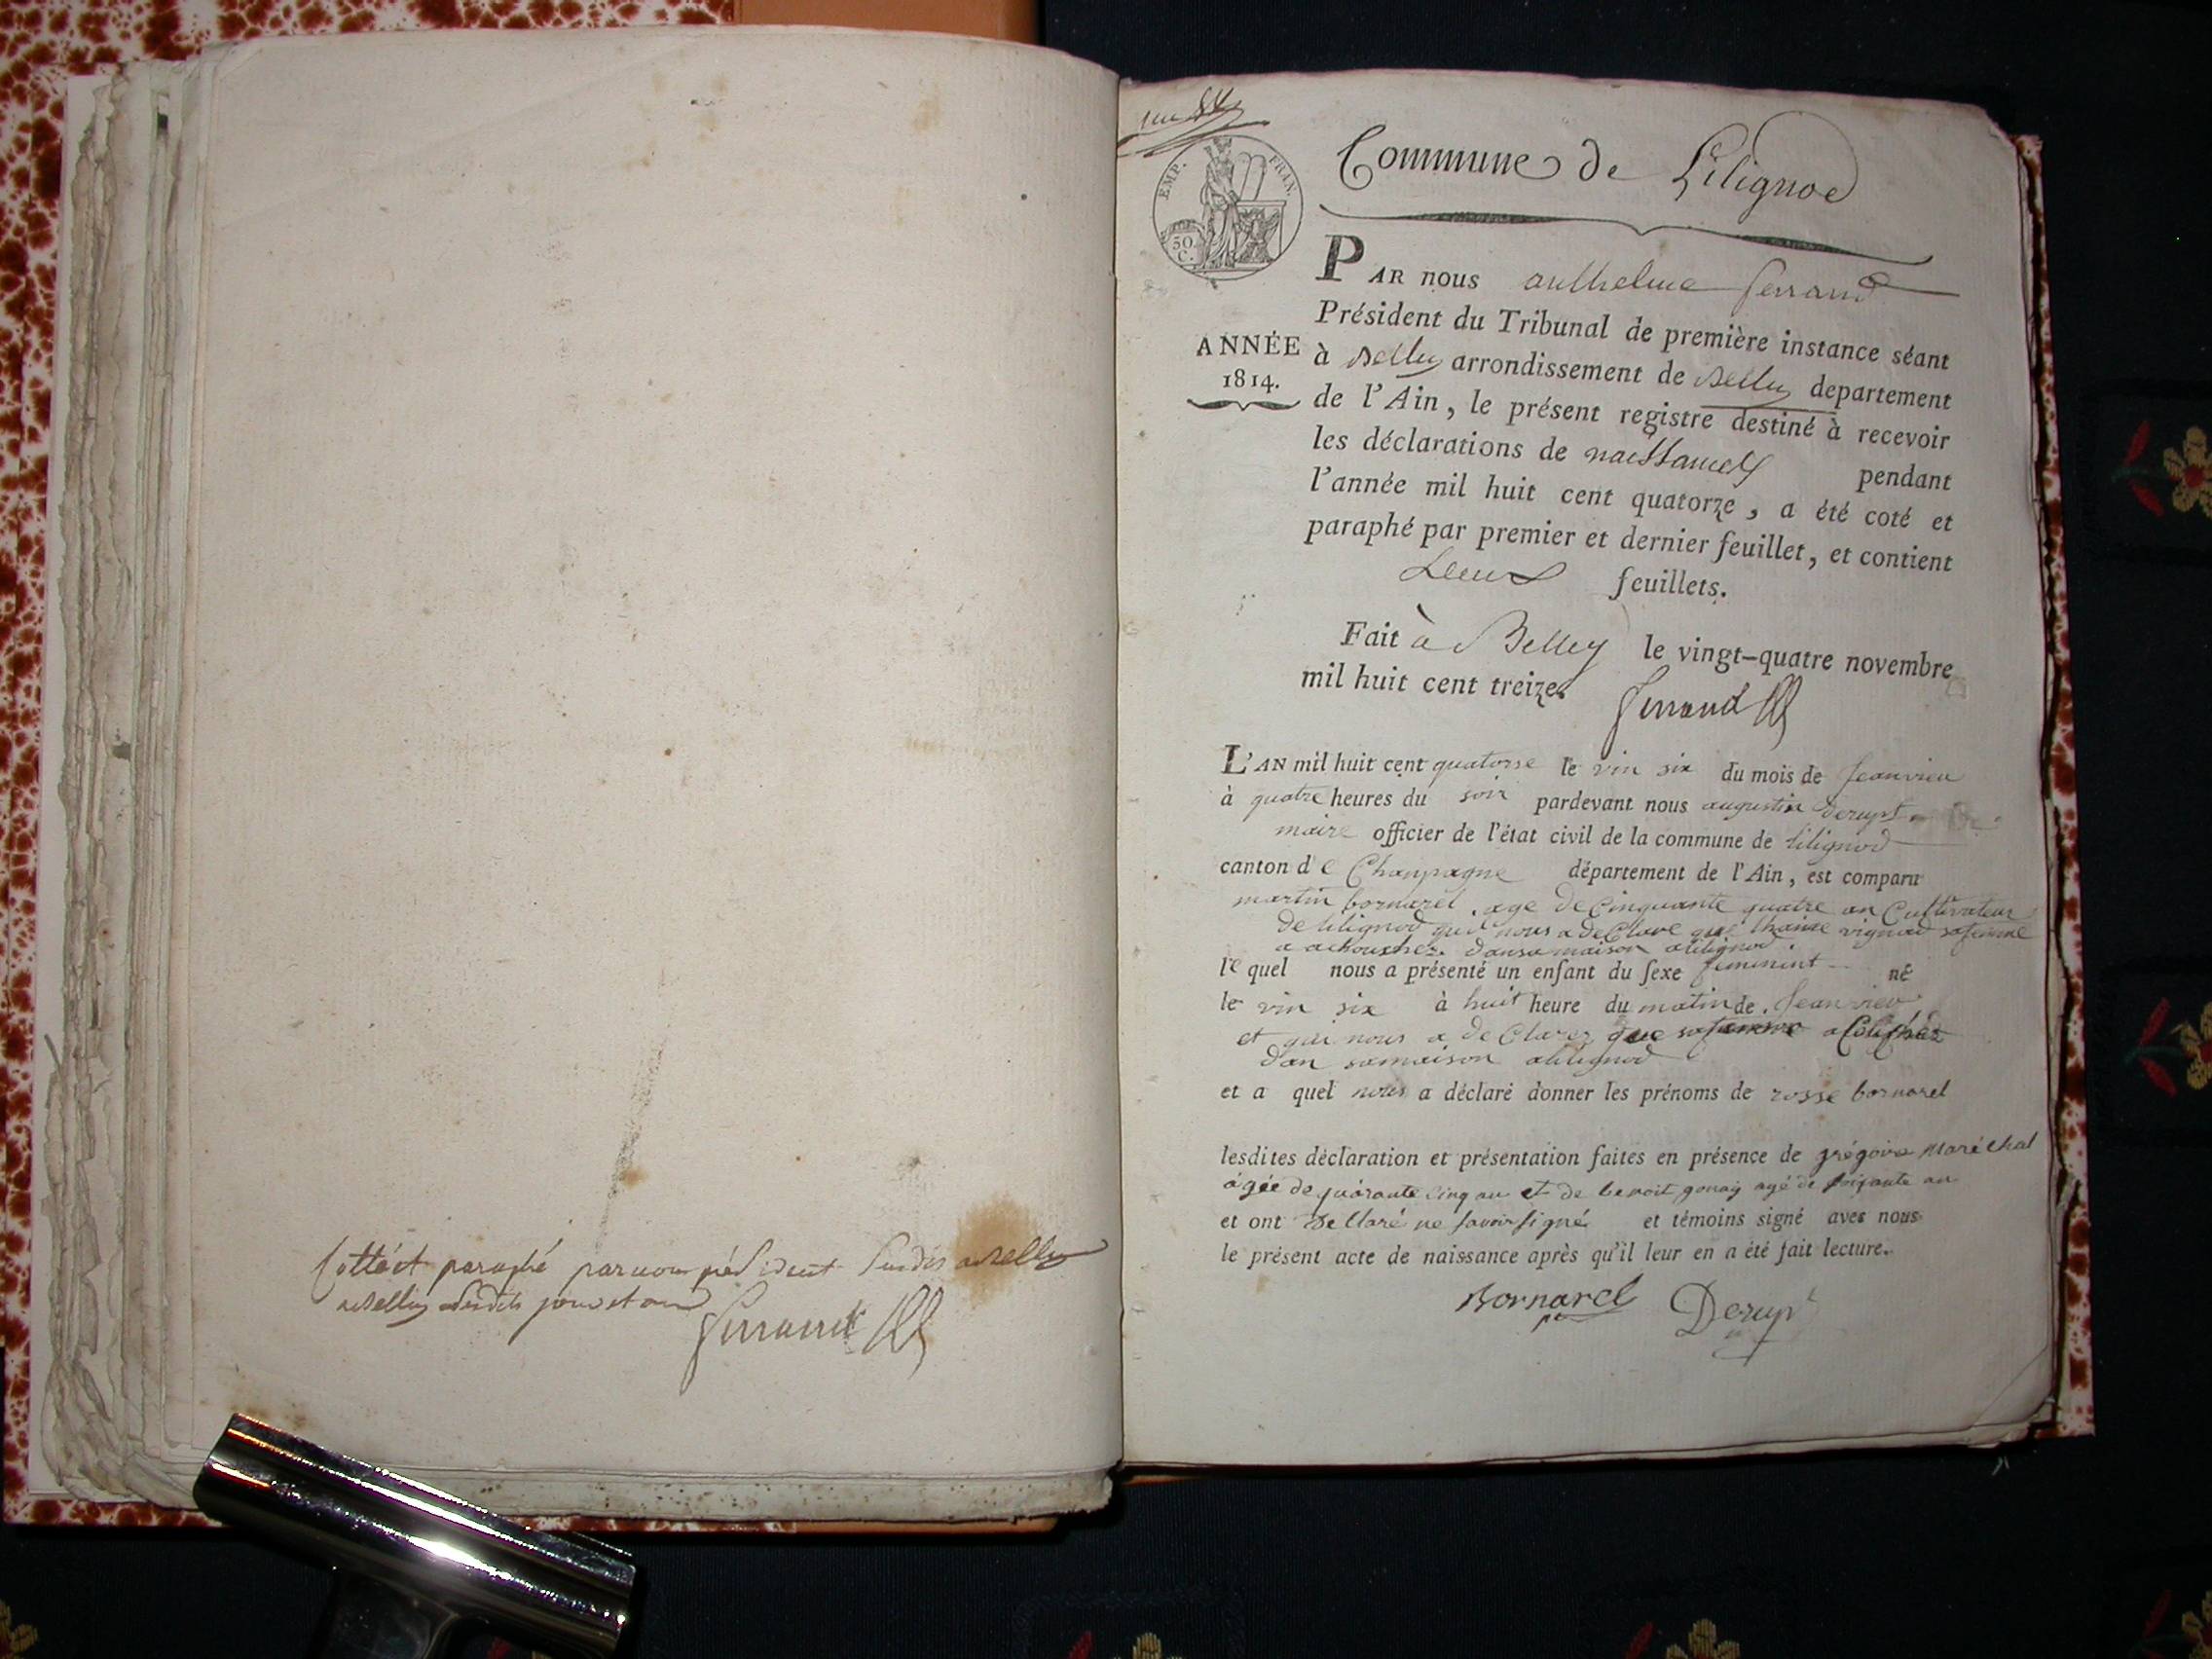 Cotté et paraphé par nous président susdit à Belley
à Belley lesdits jour et an
Ferrand
Commune de Lilignod
EMP. FRAN.
50
C.
PAR nous anthelme ferrand
Président du Tribunal de première instance séant
ANNÉE
1814.
à Belley arrondissement de Belley departement
de l'Ain, le présent registre destiné à recevoir
les déclarations de naissances pendant
l'année mil huit cent quatorze, a été coté et
paraphé par premier et dernier feuillet, et contient
Deux feuillets.
Fait à Belley le vingt-quatre novembre
mil huit cent treize.
Ferrand
L'AN mil huit cent quatorse le vin six du mois de Jeanvieu
à quatre heures du soir pardevant nous augustin Derupt
maire officier de l'état civil de la commune de lilignod
canton de Chanpagne département de l'Ain, est comparu
martin bornarel age de Cinquante quatre an Cultivateur
de lilignod qui nous a deClare que vignod safemme
a achouchez dansa maison alilignod
le quel nous a présenté un enfant du sexe feminint né
le vin six à huit heure du matin de Jeanvieu
et qui nous a deClarez que safemme a Couchez
dan samaison alilignod
et a quel nous a déclaré donner les prénoms de rosse bornarel
lesdites déclaration et présentation faites en présence de grégoire Maréchal
ágée de quárante cinq an et de benoit agé de soixante an
et ont declaré ne savoir signé et témoins signé avec nous
le présent acte de naissance après qu'il leur en a été fait lecture.
Bornarel Derupt